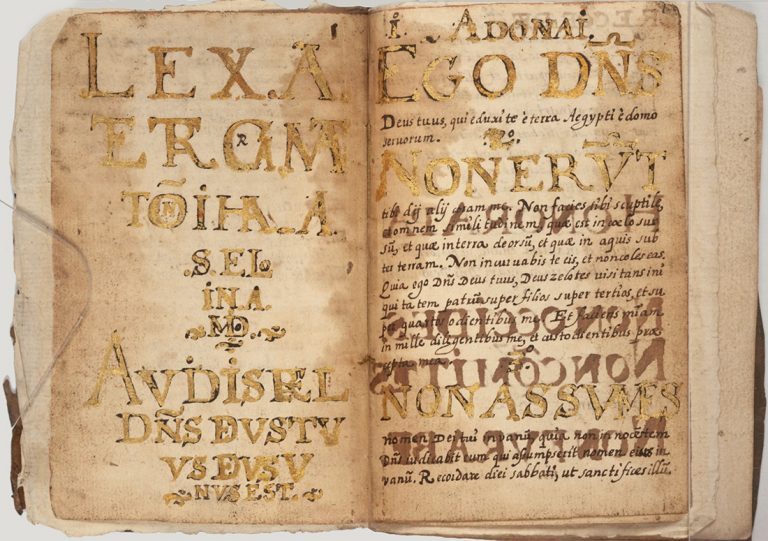 LEX. A.
SEL
INA.
MO.
AVDISREL
DÑS DEVSTV
VS DEVSV
NVS EST.
i. ADONAI.
EGO DÑS
Deus tuus, qui eduxi te è terra Aegypti è domo
servorum.
2o.
NON ERVT
tibi dij alij coram me. Non facies tibi sculptile
et omnem similitudinem, quæ est in coelo sur
sũ, et quæ in terra deorsũ, et quæ in aquis sub
tus terram. Non incurvabis te eis, et non coles eas.
Quia ego Dñs Deus tuus, Deus zelotes visitans ini
quitatem patrũ super filios super tertios, et su
per quartos odientibus me. Et faciens miam
in mille diligentibus me, et custodientibus præ
cepta mea.
3o.
NON ASSVMES
nomen Dei tui in vanũ, quia non innocẽtem
Dñs iudicabit eum qui assumpserit nomen eius in
vanũ. Recordare diei sabbati, ut sanctifices illũ.